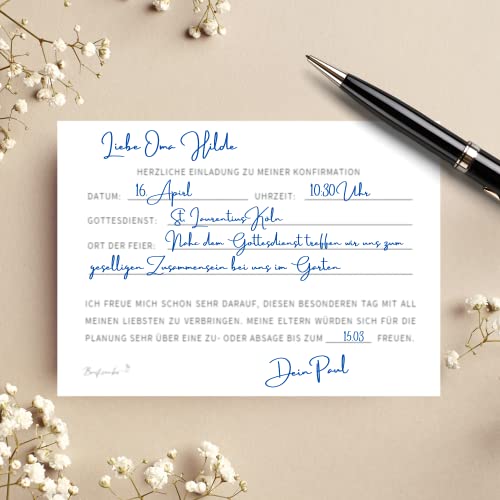 Liebe Oma Hilde
HERZLICHE EINLADUNG ZU MEINER KONFIRMATION
DATUM: 16. April UHRZEIT: 10.30 Uhr
GOTTESDIENST: St. Laurentius Köln
ORT DER FEIER: Nahc dem Gottesdienst treffen wir uns zum
geselligen Zusammensein bei uns im Garten
ICH FREUE MICH SCHON SEHR DARAUF, DIESEN BESONDEREN TAG MIT ALL
MEINEN LIEBSTEN ZU VERBRINGEN. MEINE ELTERN WÜRDEN SICH FÜR DIE
PLANUNG SEHR ÜBER EINE ZU- ODER ABSAGE BIS ZUM 15.03 FREUEN.
Dein Paul